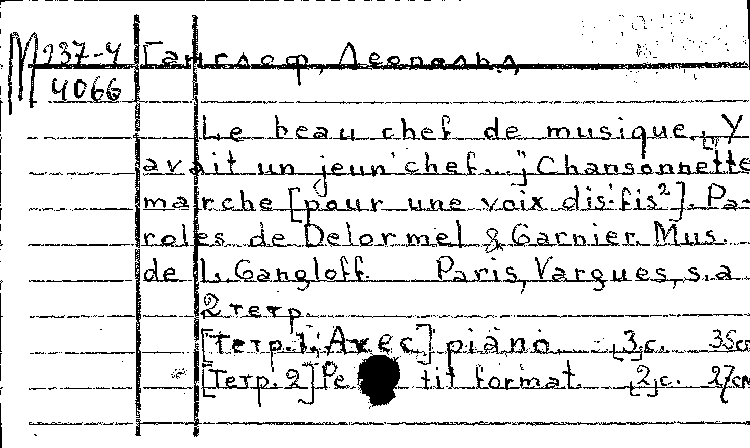 М 237-4 Гангло​ф, Леопольд,
4066
Le beau chef de musique. [Y
avait un jeun' chef...] Chansonnette
marche [pour une voix dis¹-fis²]. Pa-
roles de Delormel & Garnier. Mus.
de L. Gangloff. Paris, Vargues, s.a
2 тетр.
[Тетр. 1: Avec] piano. [3]с. 35см
[Тетр. 2] Petit format. [2]с. 27см